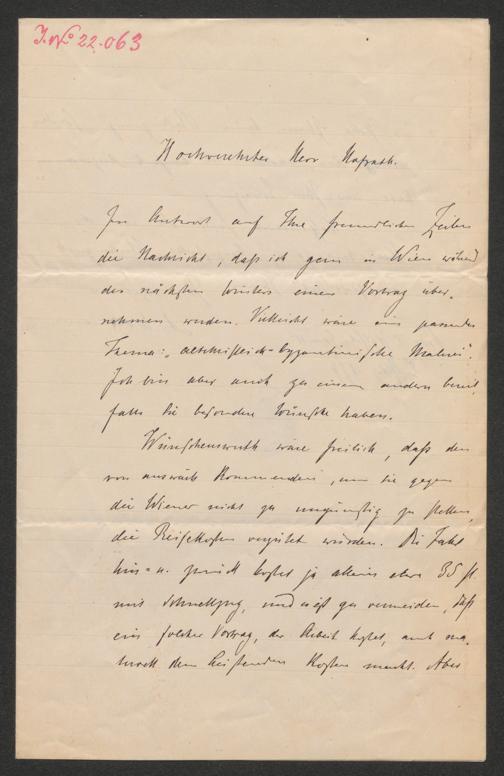 J. No 22.063
Hochverehrter Herr Hofrath.
In Antwort auf Ihre freundlichen Zeilen
die Nachricht, daß ich gern in Wien während
des nächsten Winters einen Vortrag über-
nehmen werde. Vielleicht wäre ein passendes
Thema: „Altchristlich-byzantinische Malerei".
Ich bin aber auch zu einem andern bereit,
falls Sie besondere Wünsche haben.
Wünschenswerth wäre freilich, daß den
von auswärts Kommenden, um sie gegen
die Wiener nicht zu ungünstig zu stellen,
die Reisekosten vergütet würden. Die Fahrt
hin- u. zurück kostet ja allein etwa 35 fl
mit Schnellzug, und es ist zu vermeiden, daß
ein solcher Vortrag, der Arbeit kostet, auch
dem Kosten macht. Aber